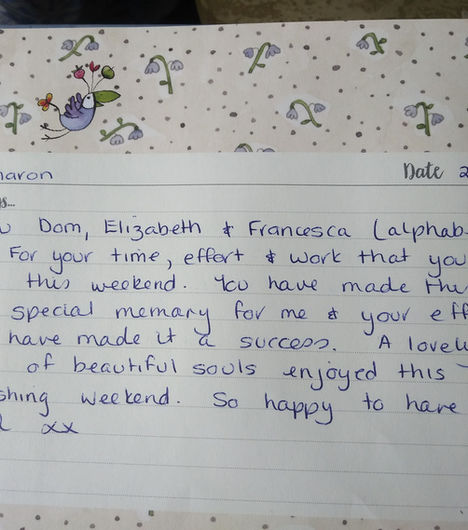 haron Date 2
s...
Dom, Elizabeth & Francesca (alphab
For your time, effort & work that you
this weekend. You have made the
special memary for me & your eff
have made it a success. A lovel
of beautiful souls enjoyed this
shing weekend. So happy to have
xx